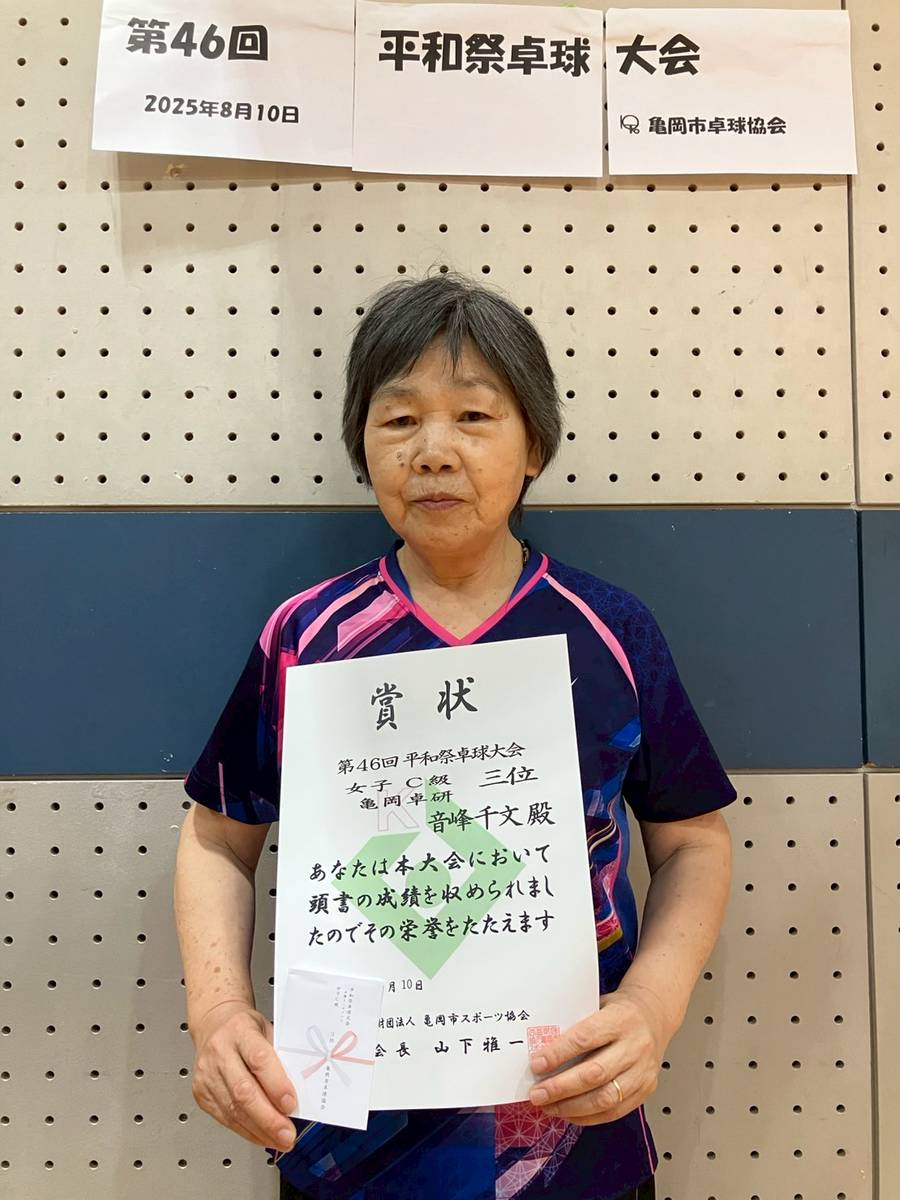 第46回 平和祭卓球 大会
2025年8月10日
亀岡市卓球協会
賞 状
第46回 平和祭卓球大会
女子 C級 三位
亀岡卓研
音峰千文 殿
あなたは本大会において
頭書の成績を収められまし
たのでその栄誉をたたえます
月10日
財団法人 亀岡市スポーツ協会
会長 山下雅一
亀岡市卓球協会